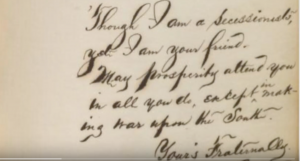 Though I am a secessionist,
yet I am your friend.
May prosperity attend you
in all you do, except in mak-
ing war upon the South.
Yours Fraternally,